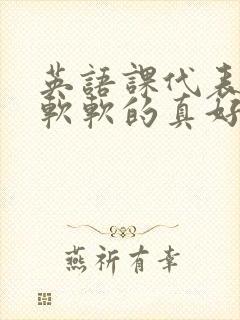 英語課代表
軟軟的真好
燕祈有幸